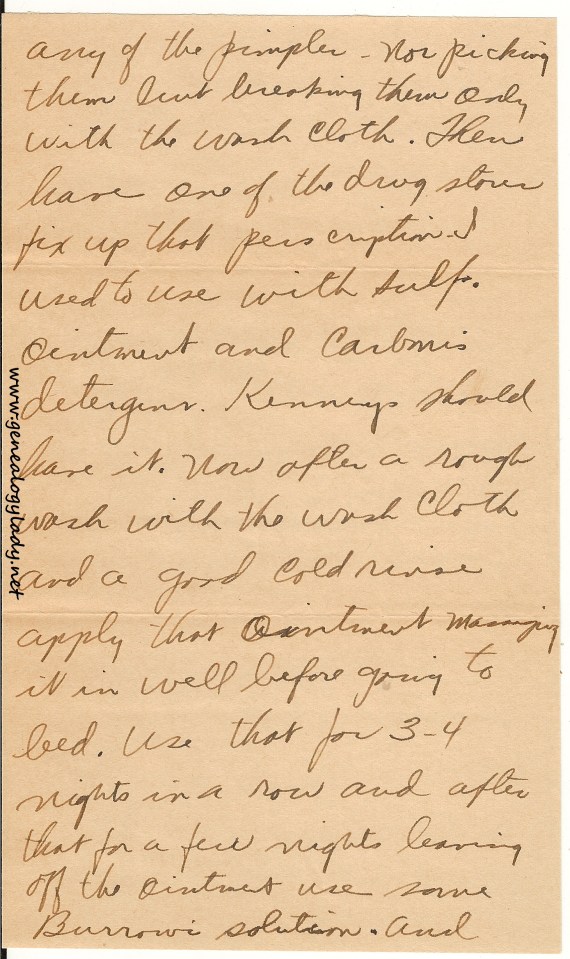 any of the pimples - Nor picking
them but breaking them only
with the wash cloth. Then
have one of the drug stores
fix up that perscription I
used to use with sulfr.
Ointment and Carbonis
detergins. Kenneys should
have it. Now after a rough
wash with the wash cloth
and a good cold rinse
apply that Ointment massaging
it in well before going to
bed. Use that for 3-4
nights in a row and after
that for a few nights leaving
off the ointment use some
Burrows solution. And
www.genealogylady.net